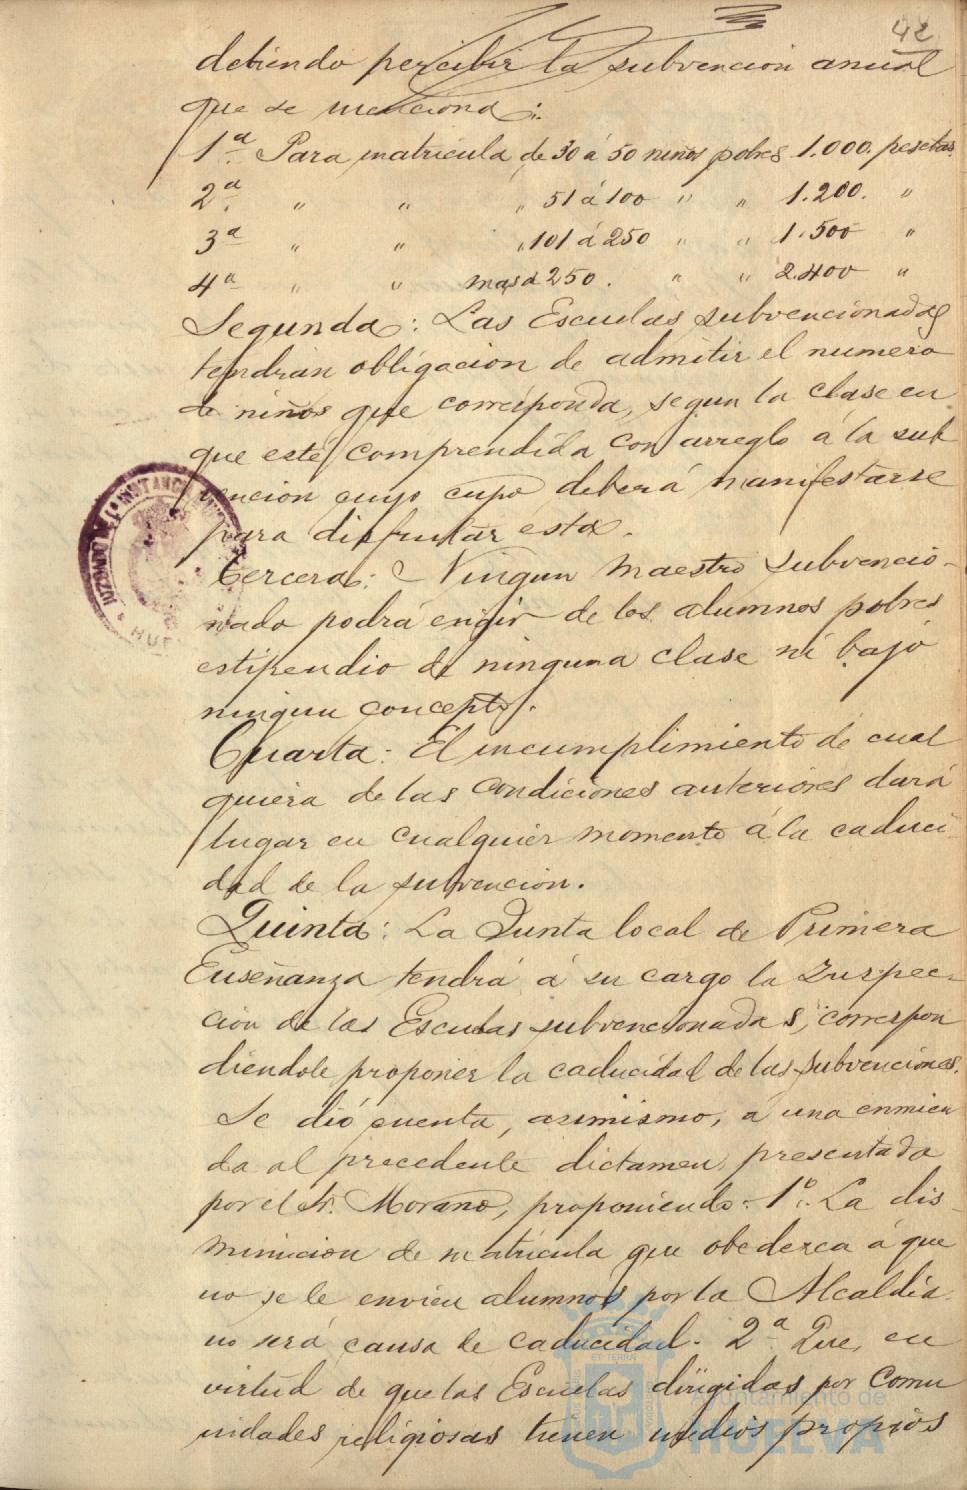 42
debiendo percibir la subvencion anual
que se menciona:
1ª Para matricula de 30 á 50 niños pobres 1.000. pesetas.
2ª " " " 51 á 100 " " 1.200. "
3ª " " " 101 á 250 " " 1.500 "
4ª " " mas d 250. " " 2.400 "
Segunda: Las Escuelas subvencionadas
tendrán obligacion de admitir el numero
de niños que corresponda, segun la clase en
que esté comprendida con arreglo á la sub
vencion cuyo cupo deberá manifestarse
para disfrutar esta.
Tercera: Ningun Maestro subvencio-
nado podrá exigir de los alumnos pobres
estipendio de ninguna clase ni bajo
ningun concepto.
Cuarta: El incumplimiento de cual
quiera de las condiciones anteriores dará
lugar en cualquier momento á la caduci
dad de la subvencion.
Quinta: La Junta local de Primera
Enseñanza tendrá á su cargo la Inspec-
cion de las Escuelas subvencionadas, correspon
diendole proponer la caducidad de las subvenciones.
Se dió cuenta, asimismo, á una enmien
da al precedente dictamen, presentada
por el Sr. Morano, proponiendo: 1º. La dis
minucion de matricula que obedezca á que
no se le envien alumnos por la Alcaldia
no será causa de caducidad. 2ª Que, en
virtud de que las Escuelas dirigidas por Comu
nidades religiosas tienen medios propios
JUZGADO DE 1ª INSTANCIA
HUE
Ayuntamiento de
HUELVA